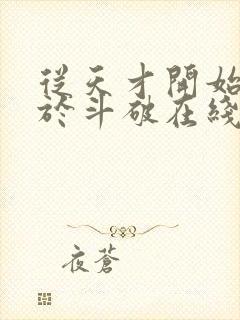 從天才開始
於斗破在綫
夜蒼